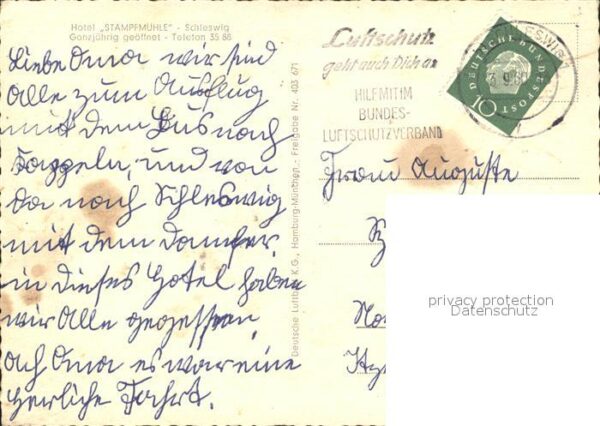 Hotel "STAMPFMÜHLE" - Schleswig
Ganzjährig geöffnet - Telefon 35 86
Liebe Oma wir sind
Alle zum Ausflug
mit dem Bus nach
und von
da nach Schleswig
mit dem Dampfer,
in dieses Hotel haben
wir Alle gegessen,
ach Oma es war eine
herrliche Fahrt.
Deutsche Luftbild K.G., Hamburg-München - Freigabe Nr. 403 671
Luftschutz
geht auch Dich an
HILF MIT IM
BUNDES-
LUFTSCHUTZVERBAND
DEUTSCHE BUNDESPOST
10
Frau Auguste
privacy protection
Datenschutz